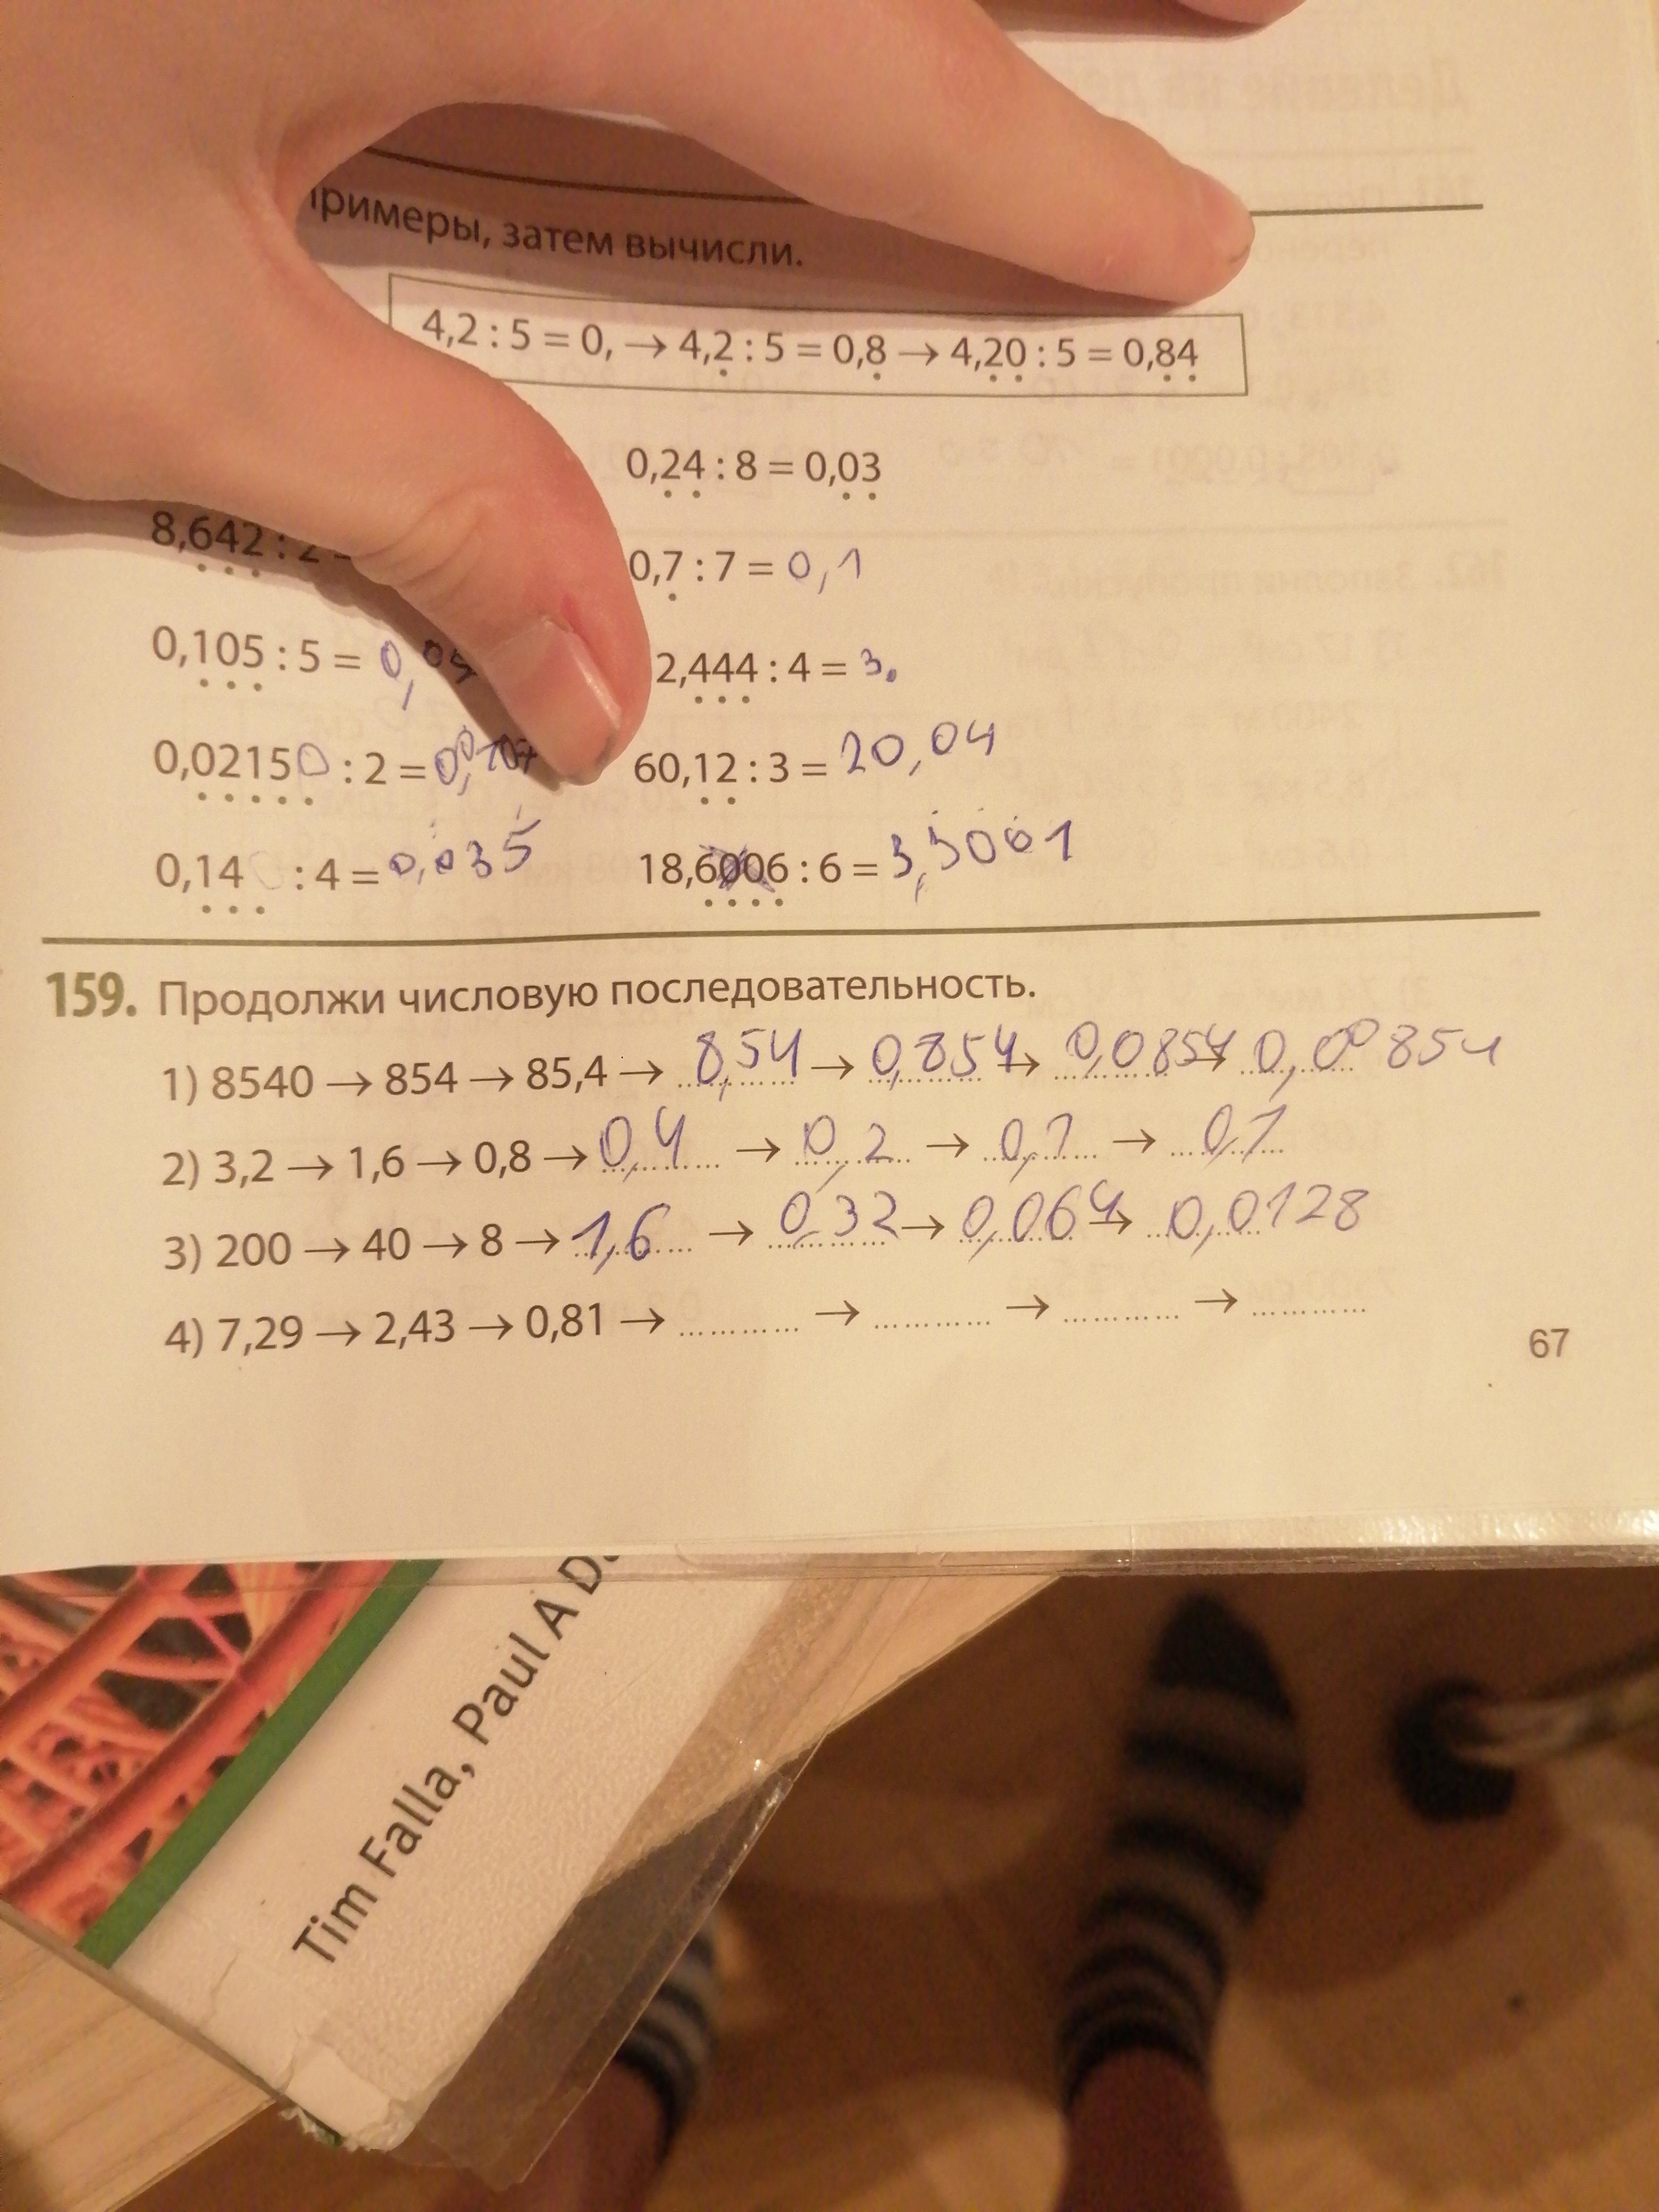 римеры, затем вычисли.
4,2 : 5 = 0, → 4,2 : 5 = 0,8 → 4,20 : 5 = 0,84
0,24 : 8 = 0,03
8,642 : 2 =
0,7 : 7 = 0,1
0,105 : 5 = 0,0
2,444 : 4 = 3,
0,02150 : 2 = 0,0107
60,12 : 3 = 20,04
0,140 : 4 = 0,035
18,6006 : 6 = 3,3001
159. Продолжи числовую последовательность.
1) 8540 → 854 → 85,4 → 8,54 → 0,854 → 0,0854 → 0,00854
2) 3,2 → 1,6 → 0,8 → 0,4 → 0,2 → 0,1 → 0,1
3) 200 → 40 → 8 → 1,6 → 0,32 → 0,064 → 0,0128
4) 7,29 → 2,43 → 0,81 → ............ → ............ → ............ → ............
67
Tim Falla, Paul A D